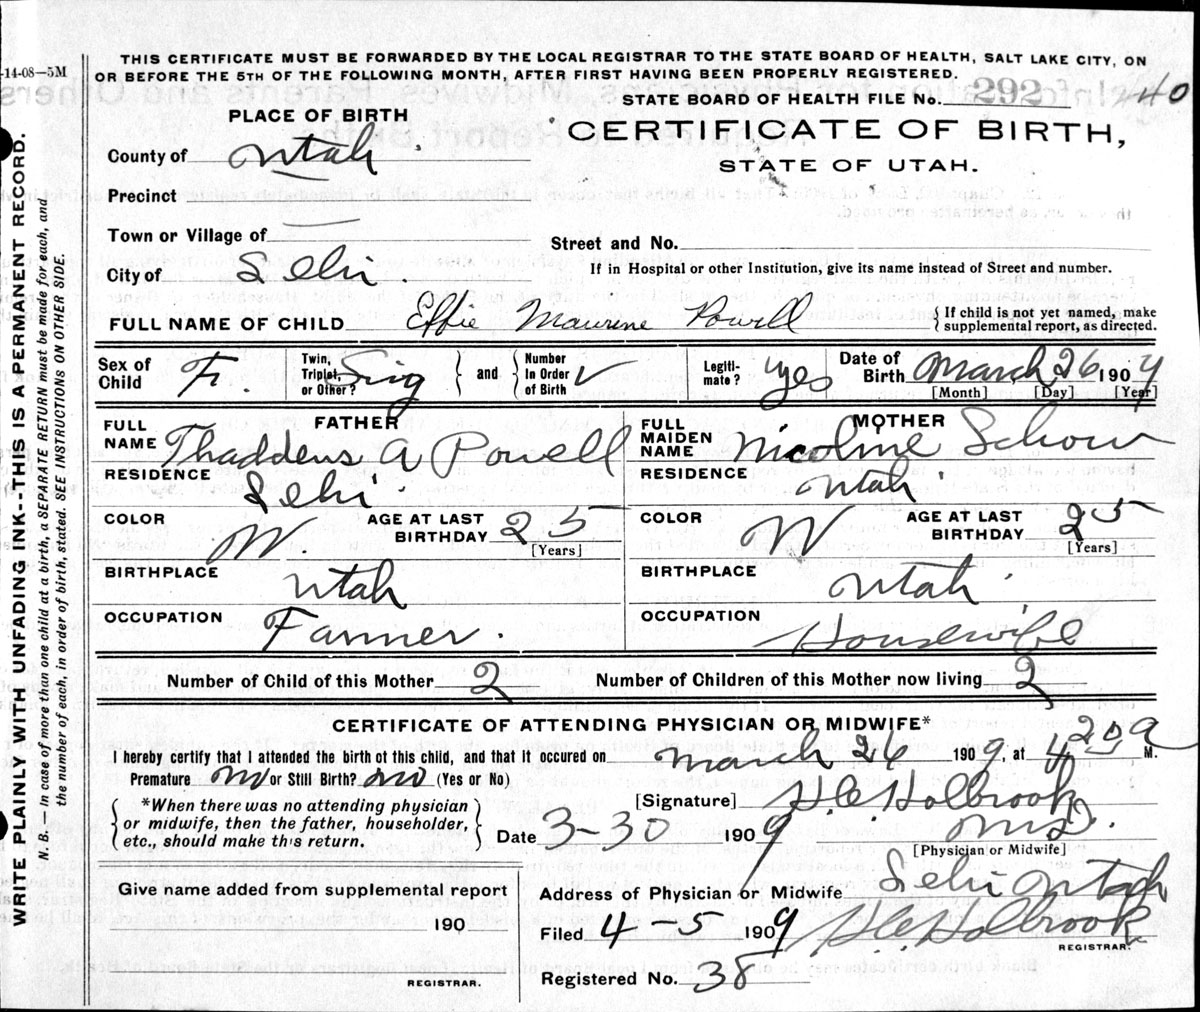 THIS CERTIFICATE MUST BE FORWARDED BY THE LOCAL REGISTRAR TO THE STATE BOARD OF HEALTH, SALT LAKE CITY, ON
OR BEFORE THE 5TH OF THE FOLLOWING MONTH, AFTER FIRST HAVING BEEN PROPERLY REGISTERED.
-14-08—5M
STATE BOARD OF HEALTH FILE No. 292 40
PLACE OF BIRTH
CERTIFICATE OF BIRTH,
STATE OF UTAH.
County of Utah
Precinct
Town or Village of
Street and No.
City of Lehi
If in Hospital or other Institution, give its name instead of Street and number.
FULL NAME OF CHILD Effie Maurine Powell
If child is not yet named, make
supplemental report, as directed.
Sex of Child F.
Twin, Triplet, or Other? Sing
and
Number In Order of Birth
Legiti-mate? yes
Date of Birth March 26 1909
[Month] [Day] [Year]
FATHER
FULL NAME Thaddeus A Powell
RESIDENCE Lehi
COLOR W.
AGE AT LAST BIRTHDAY 25
[Years]
BIRTHPLACE Utah
OCCUPATION Farmer.
MOTHER
FULL MAIDEN NAME Nicoline Schow
RESIDENCE Utah
COLOR W
AGE AT LAST BIRTHDAY 25
[Years]
BIRTHPLACE Utah
OCCUPATION Housewife
Number of Child of this Mother 2
Number of Children of this Mother now living 2
CERTIFICATE OF ATTENDING PHYSICIAN OR MIDWIFE*
I hereby certify that I attended the birth of this child, and that it occured on March 26 1909, at 4 20 a M.
Premature no or Still Birth? no (Yes or No)
*When there was no attending physician
or midwife, then the father, householder,
etc., should make this return.
[Signature] H.C. Holbrook
M.D.
[Physician or Midwife]
Date 3-30 1909
Give name added from supplemental report
190
REGISTRAR.
Address of Physician or Midwife Lehi Utah
Filed 4-5 1909 H.C. Holbrook
REGISTRAR.
Registered No. 38
WRITE PLAINLY WITH UNFADING INK--THIS IS A PERMANENT RECORD.
N. B.—In case of more than one child at a birth, a SEPARATE RETURN must be made for each, and
the number of each, in order of birth, stated. SEE INSTRUCTIONS ON OTHER SIDE.